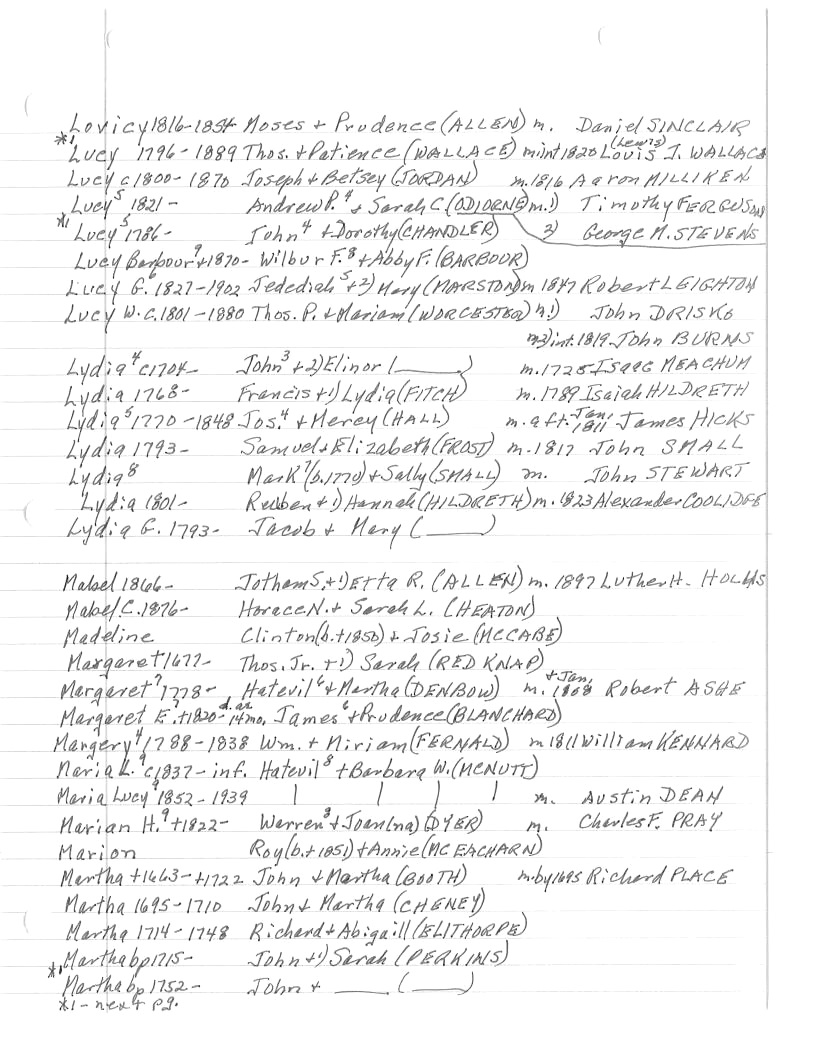 Lovicy 1816-1854 Moses + Prudence (ALLEN) m. Daniel SINCLAIR
*1
Lucy 1796-1889 Thos. + Patience (WALLACE) m int 1820 Louis (Lewis) J. WALLACE
Lucy c1800-1870 Joseph + Betsey (JORDAN) m. 1816 Aaron MILLIKEN
Lucy⁵ 1821- Andrew P.⁴ + Sarah C. (ODIORNE) m. 1) Timothy FERGUSON
*1 Lucy⁵ 1786- John⁴ + Dorothy (CHANDLER) 2) George M. STEVENS
Lucy Barbour⁹ +1870- Wilbur F.⁸ + Abby F. (BARBOUR)
Lucy G.⁶ 1827-1902 Jedediah⁵ + 2) Mary (MARSTON) m 1847 Robert LEIGHTON
Lucy W. c.1801-1880 Thos. P. + Mariam (WORCESTER) m. 1) John DRISKO
m2) int. 1819 John BURNS
Lydia⁴ c1704- John³ + 2) Elinor (____)  m. 1725 Isaac MEACHUM
Lydia 1768- Francis + 1) Lydia (FITCH) m. 1789 Isaiah HILDRETH
Lydia⁵ 1770-1848 Jos.⁴ + Mercy (HALL) m. aft. Jan. 1811 James HICKS
Lydia 1793- Samuel + Elizabeth (FROST) m. 1817 John SMALL
Lydia⁸ Mark⁷ (b. 1770) + Sally (SMALL) m. John STEWART
Lydia 1801- Reuben + 1) Hannah (HILDRETH) m. 1823 Alexander COOLIDGE
Lydia G. 1793- Jacob + Mary (____)
Mabel 1866- Jotham S. + 1) Etta R. (ALLEN) m. 1897 Luther H.
Mabel C. 1876- Horace N. + Sarah L. (HEATON)
Madeline Clinton (b. +1850) + Josie (MCCABE)
Margaret +1677- Thos. Jr. + 1) Sarah (RED KNAP)
Margaret⁷ 1778- Hatevil⁶ + Martha (DENBOW) m. + Jan. 1868 Robert ASHE
Margaret E.⁷ +1820- d. ae 14 mo. James⁶ + Prudence (BLANCHARD)
Margery⁴ 1788-1838 Wm. + Miriam (FERNALD) m 1811 William KENNARD
Maria L.⁹ c1837- inf. Hatevil⁸ + Barbara W. (MCNUTT)
Maria Lucy⁹ 1852-1939 | | | | m. Austin DEAN
Marian H.⁹ +1822- Warren⁸ + Joan(na) (DYER) m. Charles F. PRAY
Marion Roy (b. +1851) + Annie (MC EACHARN)
Martha +1663-+1722 John + Martha (BOOTH) m. by 1695 Richard PLACE
Martha 1695-1710 John + Martha (CHENEY)
Martha 1714-1748 Richard + Abigaill (ELITHORPE)
Martha bp 1715- John + 1) Sarah (PERKINS)
*1 Martha bp 1752- John + ____ (____)
*1 - next pg.